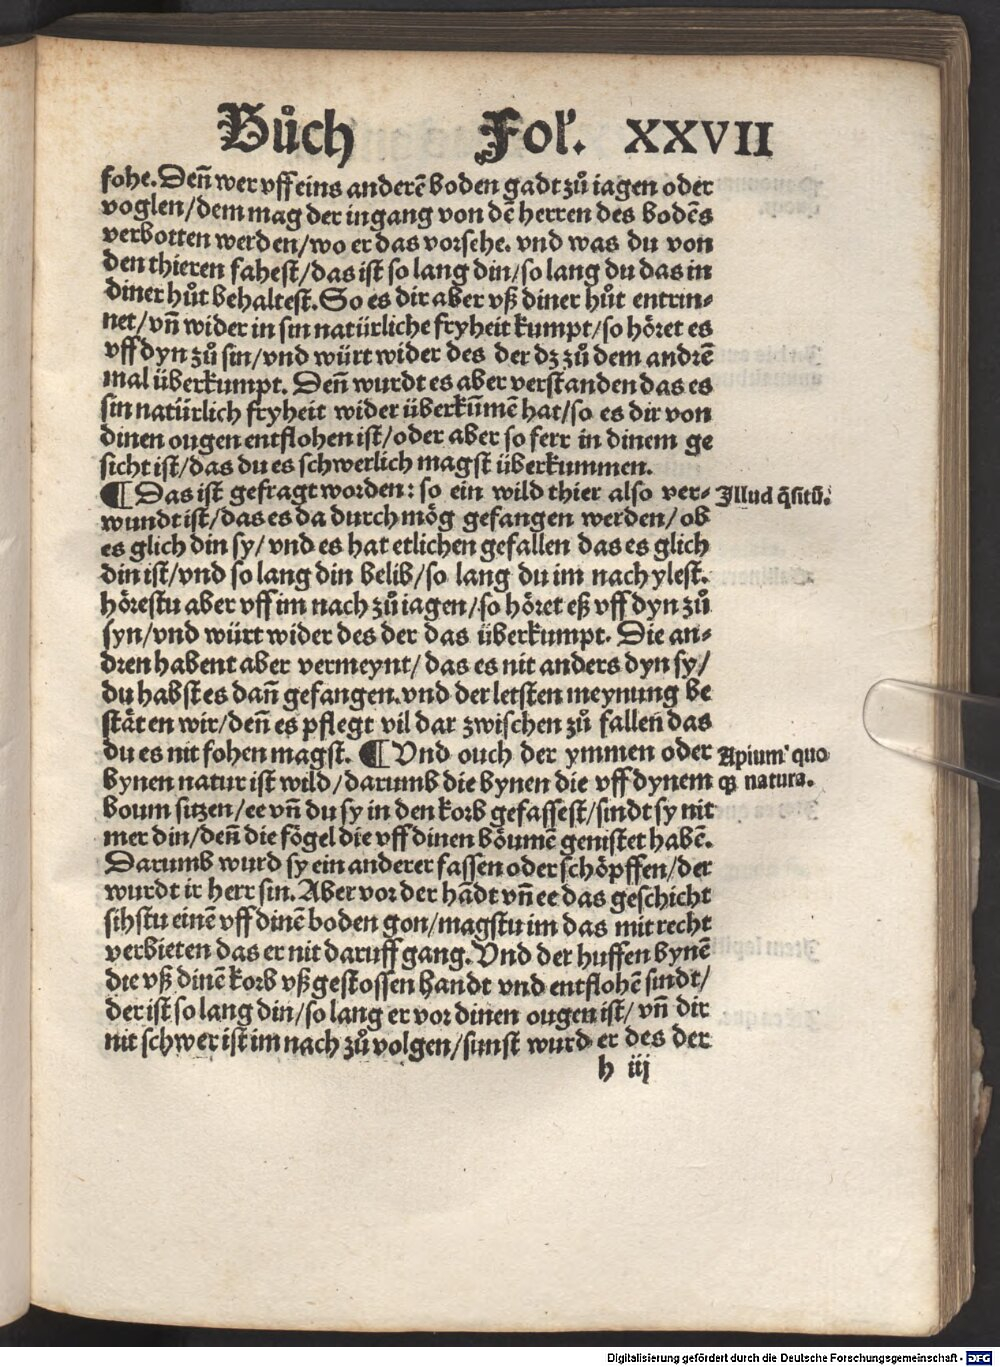 Bůch Fol'. XXVII
fohe. Deñ wer vff eins anderē boden gadt zů iagen oder
voglen/dem mag der ingang von dē herren des bodēs
verbotten werden/wo er das vorsehe. vnd was du von
den thieren fahest/das ist so lang din/so lang du das in
diner hůt behaltest. So es dir aber vß diner hůt entrin⸗
net/vñ wider in sin natürliche fryheit kumpt/so höret es
vff dyn zů sin/vnd würt wider des der dz zů dem andrē
mal überkumpt. Deñ wurdt es aber verstanden das es
sin natürlich fryheit wider überkūmē hat/so es dir von
dinen ougen entflohen ist/oder aber so ferr in dinem ge
sicht ist/das du es schwerlich magst überkummen.
¶ Das ist gefragt worden: so ein wild thier also ver⸗
Illud q̄sitū.
wundt ist/das es da durch mög gefangen werden/ob
es glich din sy/vnd es hat etlichen gefallen das es glich
din ist/vnd so lang din belib/so lang du im nach ylest.
hörestu aber vff im nach zů iagen/so höret eß vff dyn zů
syn/vnd würt wider des der das überkumpt. Die an⸗
dren habent aber vermeynt/das es nit anders dyn sy/
du habst es dañ gefangen. vnd der letsten meynung be
stäten wir/deñ es pflegt vil dar zwischen zů fallen das
du es nit fohen magst. ¶ Vnd ouch der ymmen oder
Apium' quo
bynen natur ist wild/darumb die bynen die vff dynem
qꝫ natura.
boum sitzen/ee vñ du sy in den korb gefassest/sindt sy nit
mer din/deñ die fögel die vff dinen böumē genistet habē.
Darumb wurd sy ein anderer fassen oder schöpffen/der
wurdt ir herr sin. Aber vor der hādt vñ ee das geschicht
sihstu einē vff dinē boden gon/magstu im das mit recht
verbieten das er nit daruff gang. Vnd der huffen bynē
die vß dinē korb vß gestossen handt vnd entflohē sindt/
der ist so lang din/so lang er vor dinen ougen ist/vñ dir
nit schwer ist im nach zů volgen/sunst wurd er des der
h iij
Digitalisierung gefördert durch die Deutsche Forschungsgemeinschaft - DFG